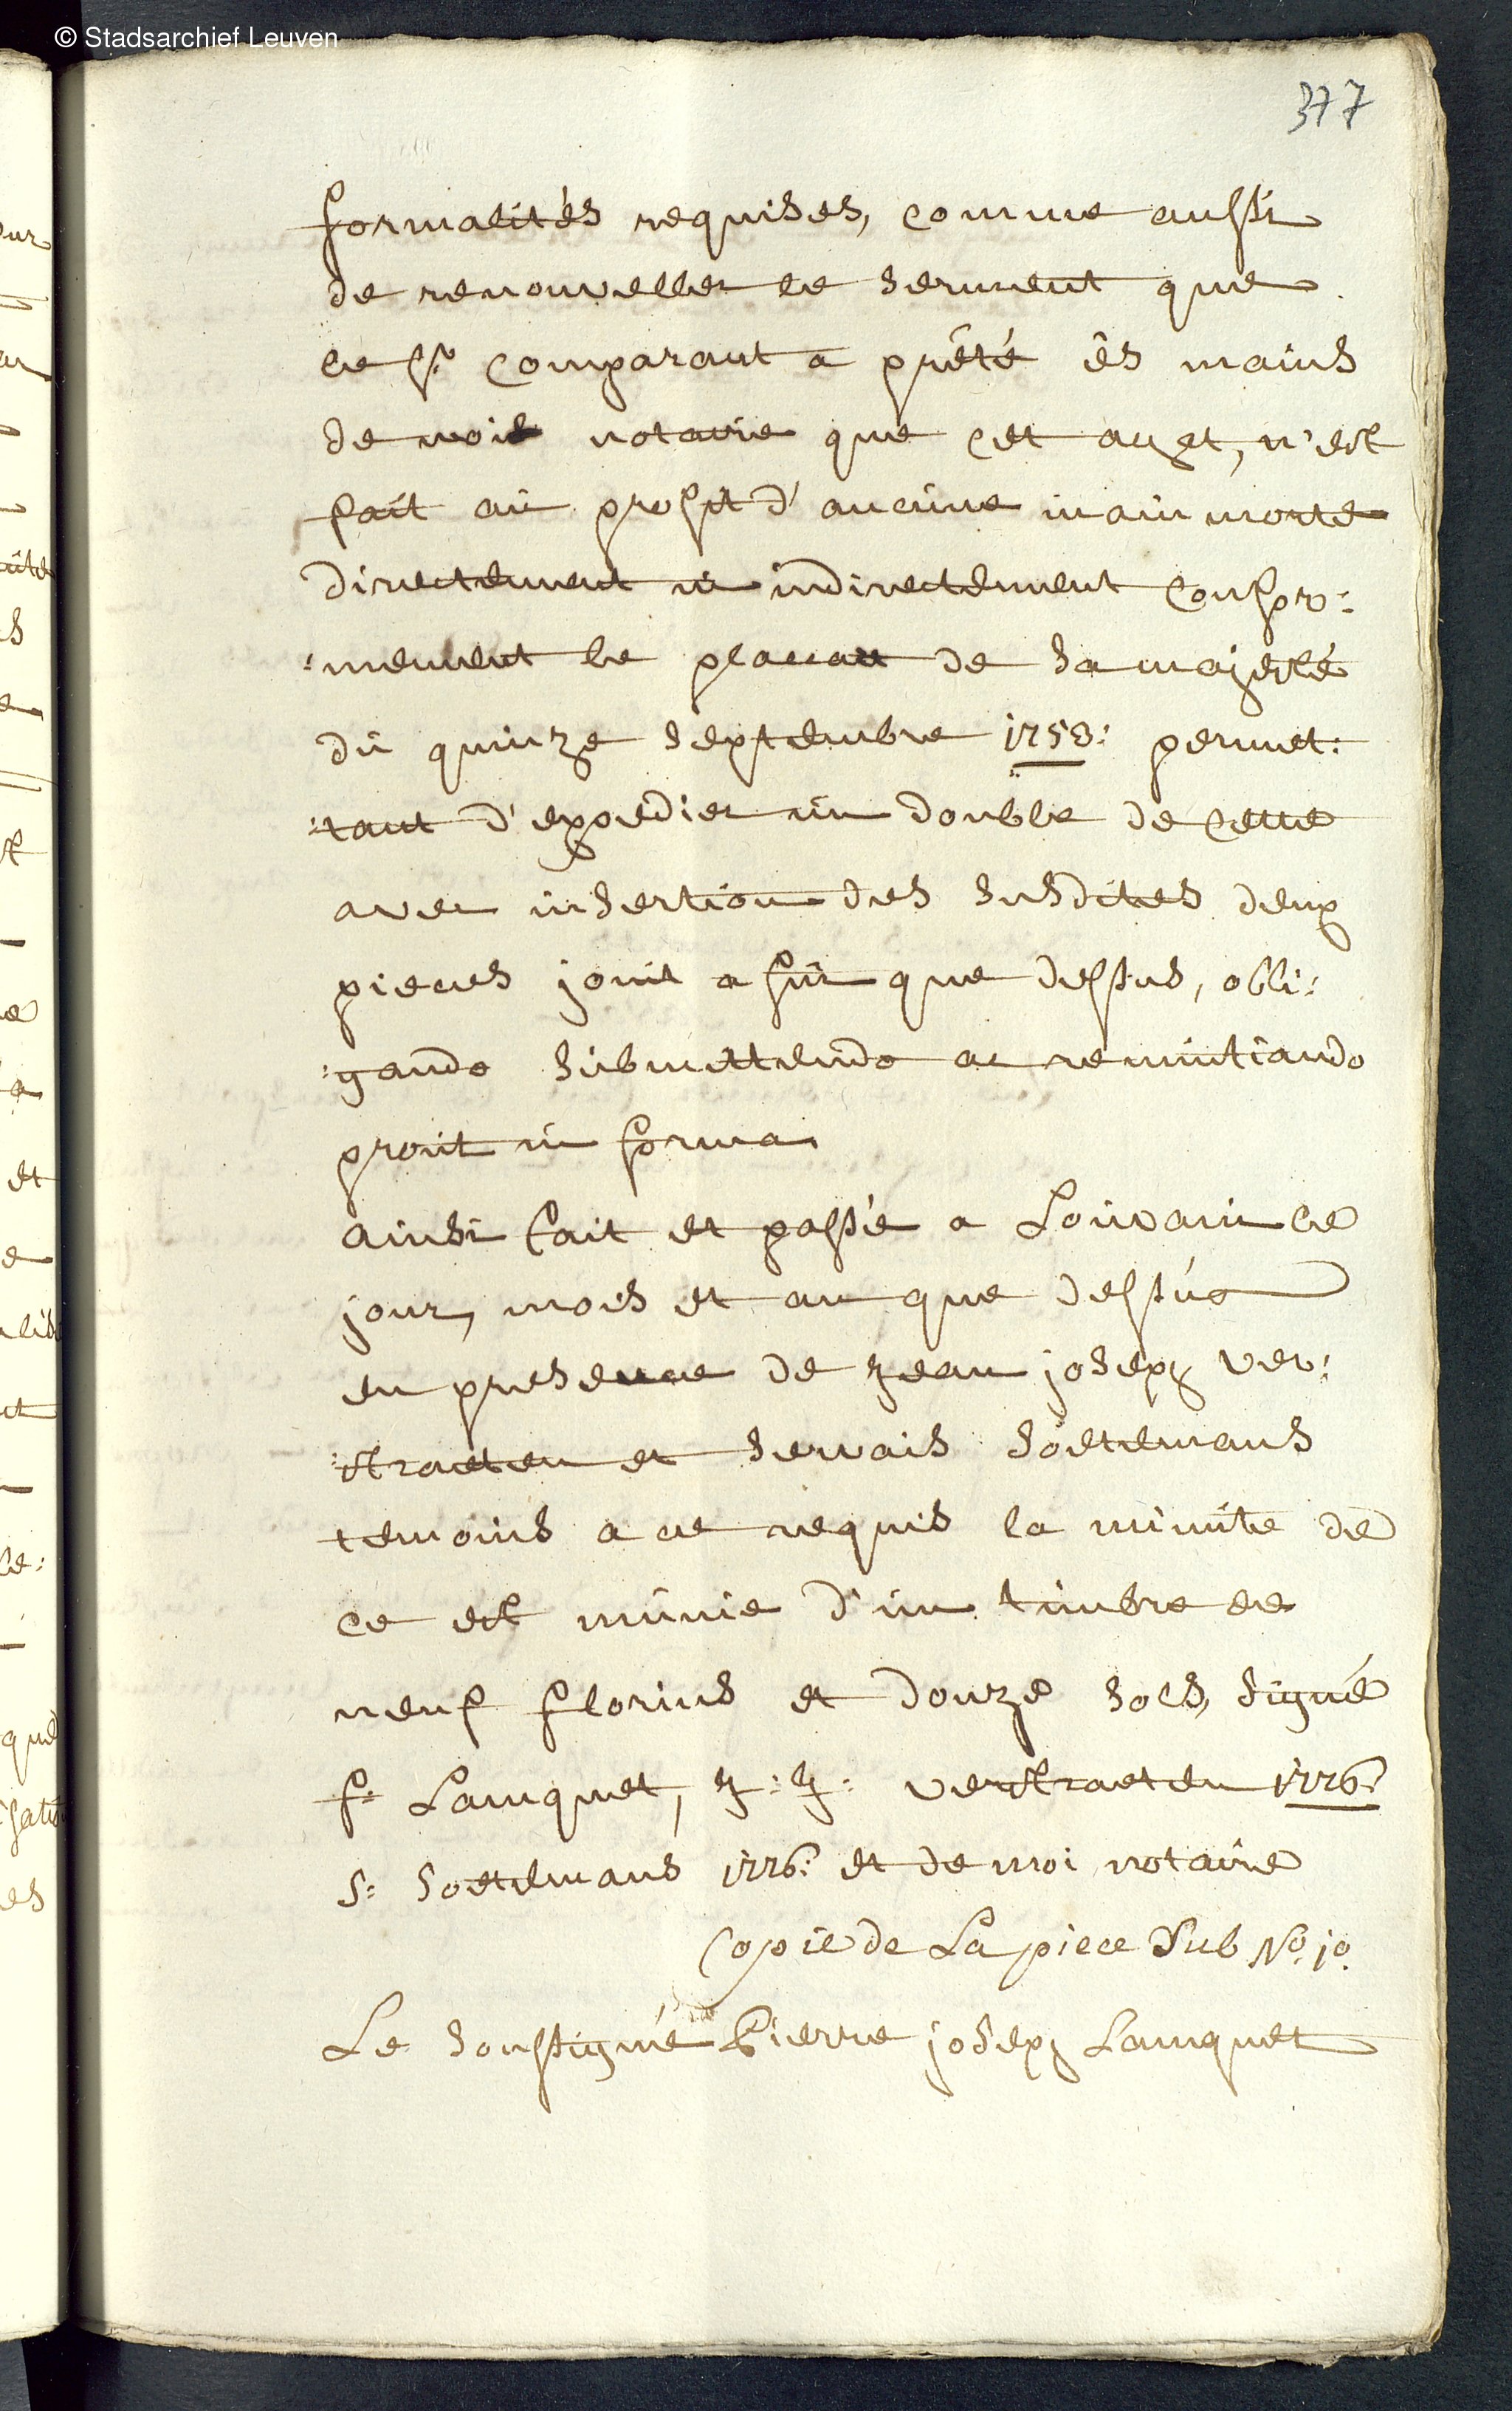 © Stadsarchief Leuven
377
formalités requises, comme aussi
de renouveller le serment que
le sr. comparant a prêté ês mains
de moi notaire que cet acqt, n'est
fait au profit d'aucune main morte
directement ni indirectement confor:
:mement le placcart de sa majesté
du quinze septembre 1753: permet:
:tant d'expedier un double de cette
avec insertion des susdites deux
pieces jouit a fin que dessus, obli:
:gando submittendo ac renuntiando
prout in forma
ainsi fait et passé a Louvain ce
jour, mois et an que dessus
en presence de Jean joseph ver:
:straeten et servais soetemans
temoins a ce requis la minute de
ce est munie d'un timbre de
neuf florins et douze sols, signé
f: Lanquet, J: J: verstraeten 1776:
S: Soetemans 1776: et de moi notaire
Copie de La piece Sub No. 10.
Le soussigné Pierre joseph Lanquet